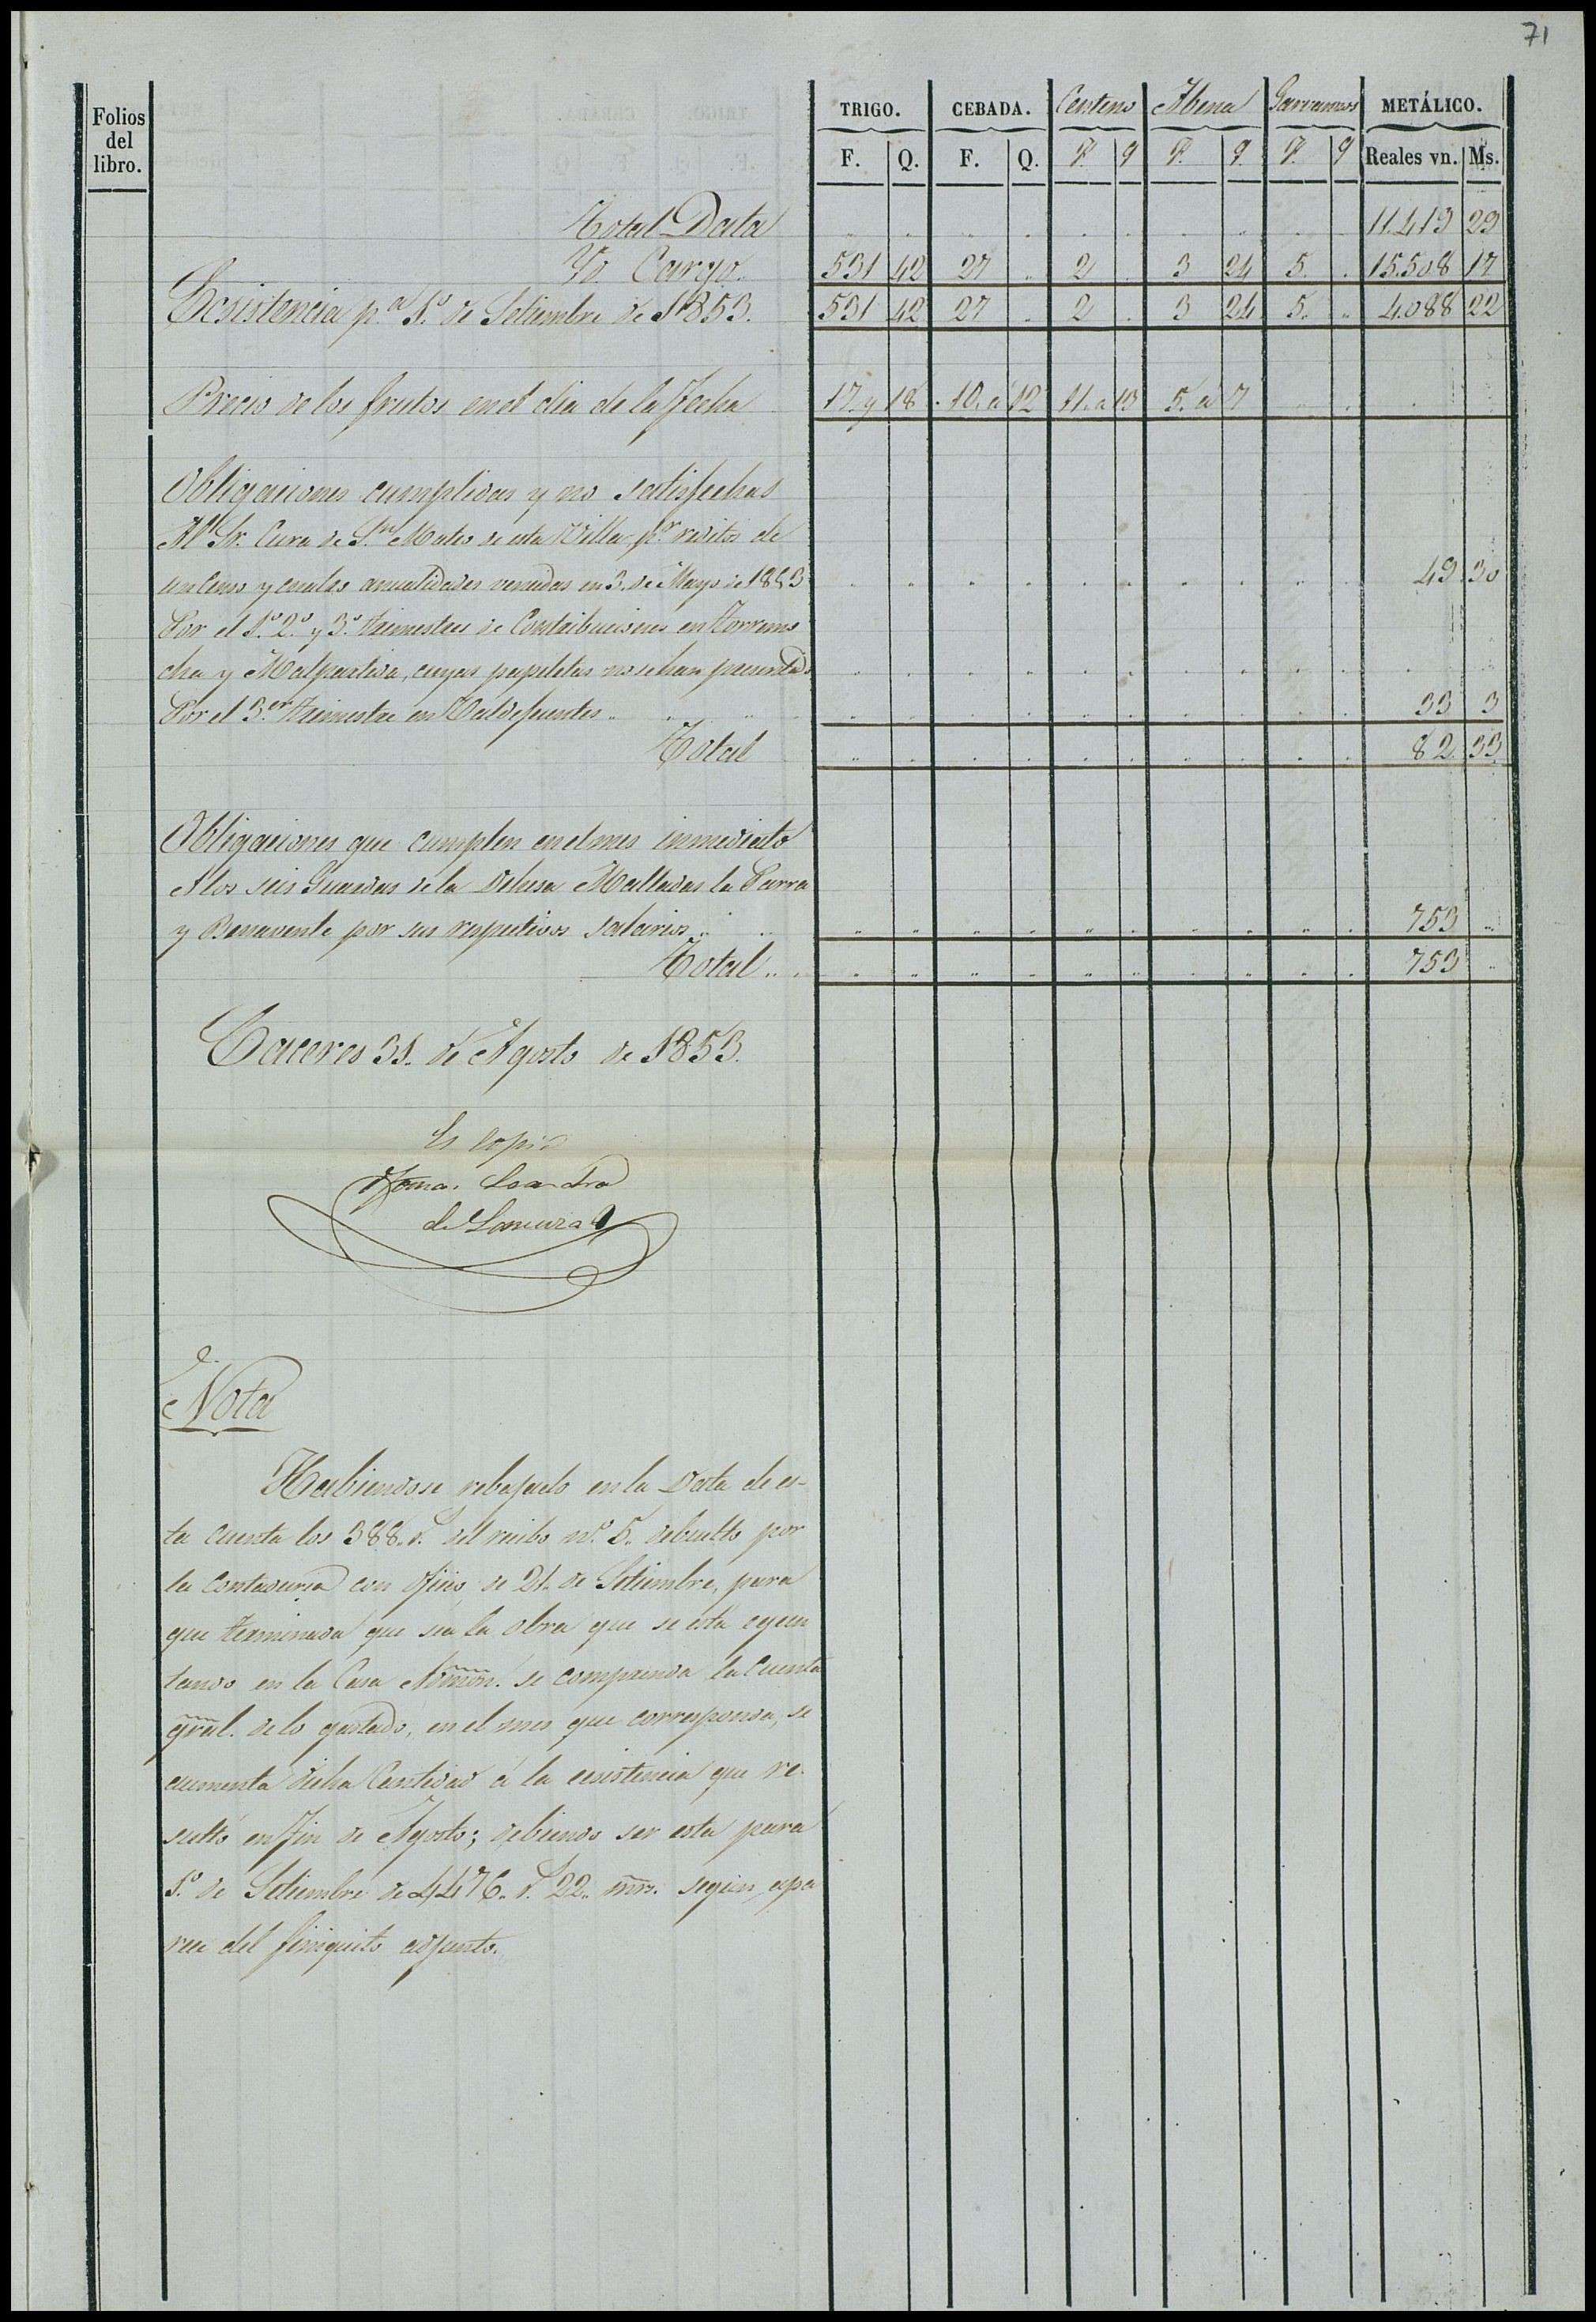 71
Folios del libro. TRIGO. CEBADA. Centeno Abena Garvanzos METÁLICO.
F. Q. F. Q. F. q F. q F. q Reales vn. Ms.
Total Data 11.419 29
Yd. Cargo 531 42 27 2 3 24 5 15.508 17
Ecsistencia p.a 1.º de Setiembre de 1853. 531 42 27 2 3 24 5 4.088 22
Precio de los frutos en el dia de la fecha 17 y 18 10 a 12 11 a 13 5 a 7
Obligaciones cumplidas y no satisfechas
Al Sr. Cura de S.n Mateo de esta Villa p.r reditos de
un Censo y anualidades vencidas en 3 de Mayo de 1853 49 30
Por el 1.º 2.º y 3.º trimestres de Contribuciones en Torremo
cha y Malpartida, cuyas papeletas no se han presentado
Por el 3.er trimestre en Valdefuentes 33 3
Total 82 33
Obligaciones que cumplen en el mes inmediato
A los seis Guardas de la Dehesa Malladas la Parra
y Benavente por sus respectivos salarios 753
Total 753
Caceres 31 de Agosto de 1853.
Es copia
de
Nota
Habiendose rebajado en la Data de es-
ta cuenta los 388. r.s del recibo n.º 5. debuelto por
la contaduria con oficio de 21 de Setiembre, para
que terminada que sea la obra que se esta ejecu
tando en la Casa Admon. se comprenda la cuenta
gral. de lo gastado, en el mes que corresponda, se
aumenta dicha Cantidad á la ecsistencia que re-
sultó en fin de Agosto; debiendo ser esta para
1.º de Setiembre de 4476. r.s 22. mrs. segun apa
rece del finiquito adjunto.